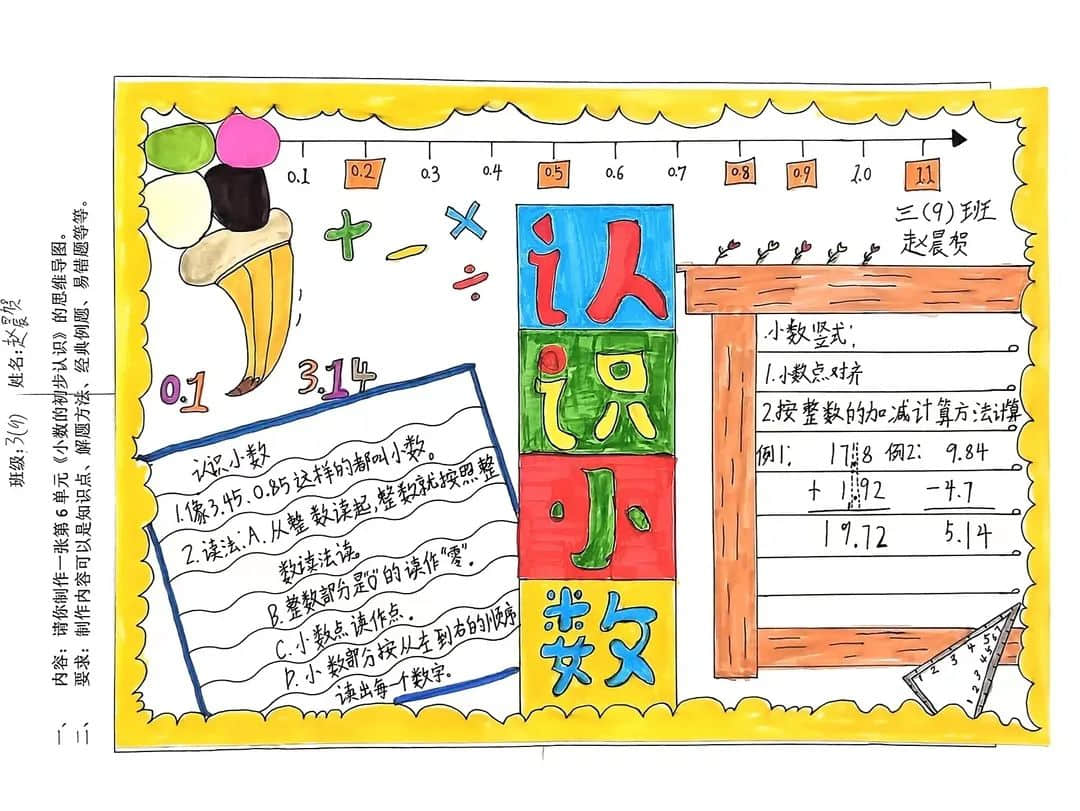 班级：3(9) 姓名：赵晨贺
一、内容：请你制作一张第6单元《小数的初步认识》的思维导图。
二、要求：制作内容可以是知识点、解题方法、经典例题、易错题等等。
0.1 0.2 0.3 0.4 0.5 0.6 0.7 0.8 0.9 1.0 1.1
三(9)班
赵晨贺
+ − × ÷
0.1 3.14
认识小数
认识小数
1.像3.45.0.85这样的都叫小数。
2.读法:A.从整数读起,整数就按照整
数读法读。
B.整数部分是"0"的读作"零"。
C.小数点读作点。
D.小数部分按从左到右的顺序
读出每个数字。
小数竖式：
1.小数点对齐
2.按整数的加减计算方法计算
例1： 17.8 例2： 9.84
+ 1.92 −4.7
19.72 5.14
1 2 3 4 5 6
1 2 3 4 5